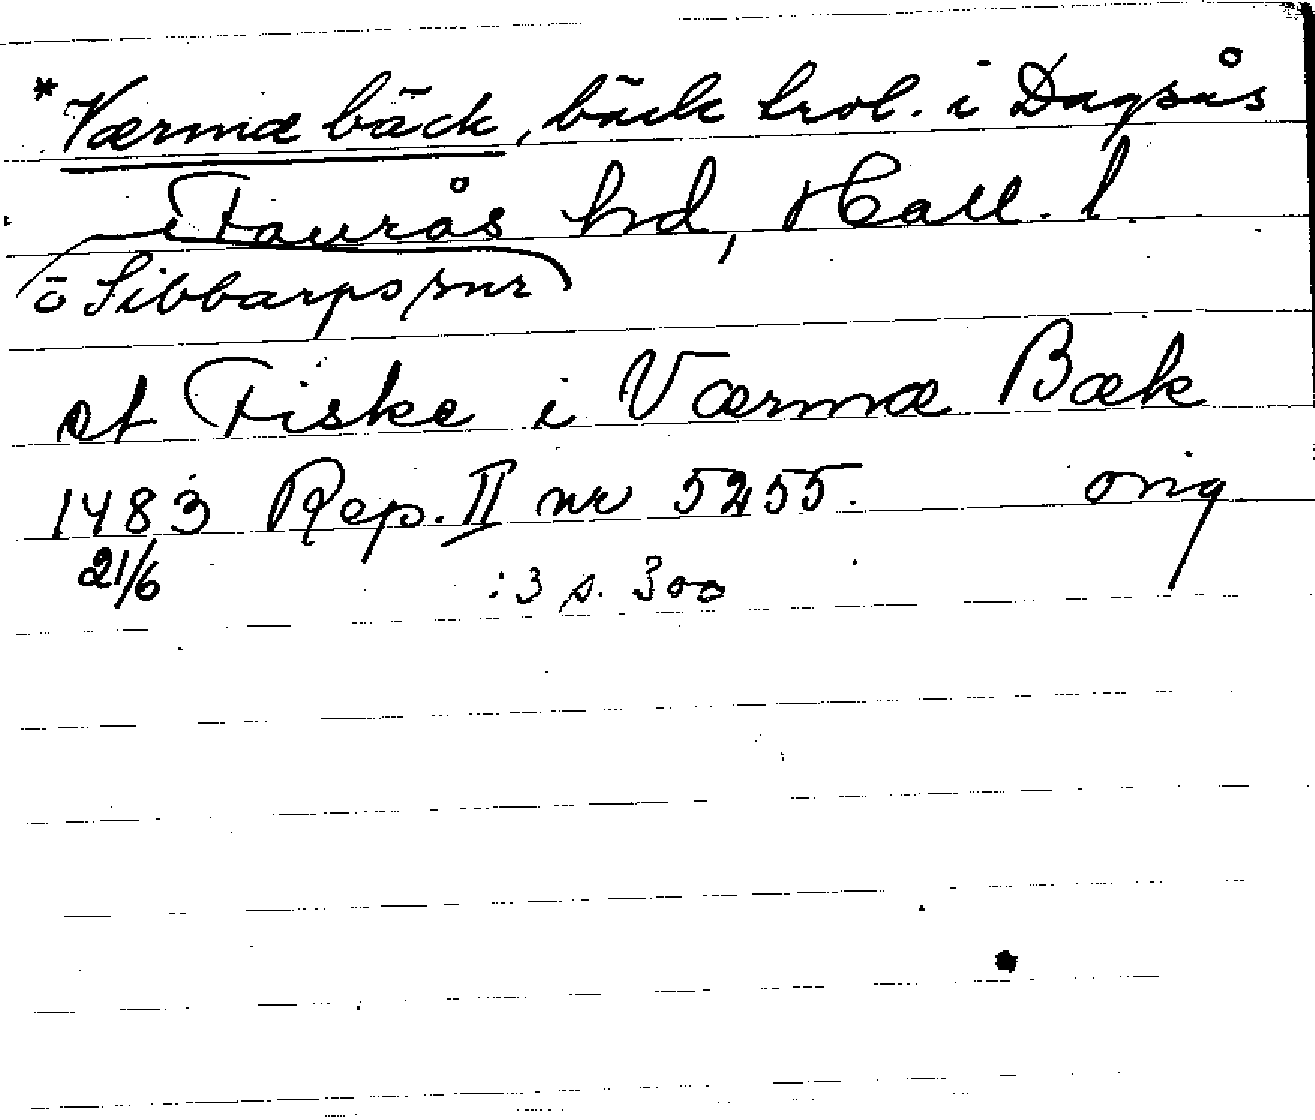 *Værmæ bäck, bäck trol. i Dagsås
i Faurås hd, Hall. l.
o Sibbarps snr
et Fiske i Værmæ Bæk
1483 Rep. II nr 5255. orig
21/6 :3 s. 300